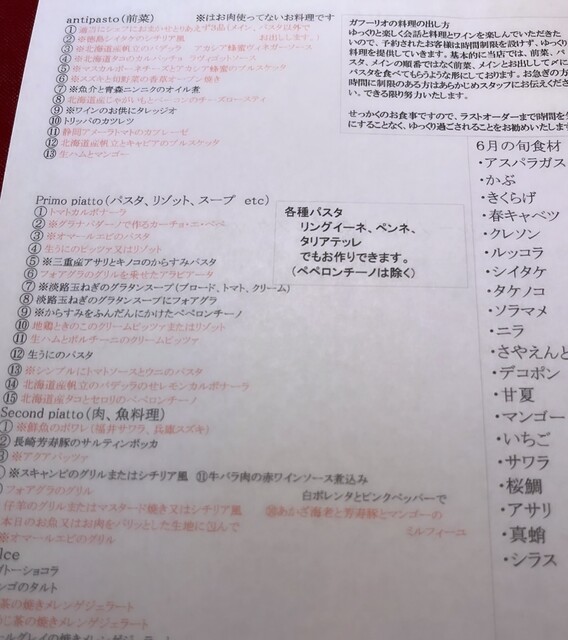 antipasto（前菜）　※はお肉使ってないお料理です
② ※徳島シイタケのシチリア風
③ ※北海道産帆立のパデッラ　アカシア蜂蜜ヴィネガーソース
④ ※北海道タコのカルパッチョ ラヴィゴットソース
⑤ ※マスカルポーネチーズとアカシア蜂蜜のブルスケッタ
⑥ ※スズキと旬野菜の香草オーブン焼き
⑦ ※魚介と青森ニンニクのオイル煮
⑧ 北海道産じゃがいもとベーコンのチーズロースティ
⑨ ※ワインのお供にタレッジオ
⑩ トリッパのカツレツ
⑪ 静岡アメーラトマトのカプレーゼ
⑫ 北海道産帆立とキャビアのブルスケッタ
⑬ 生ハムとマンゴー
Primo piatto（パスタ、リゾット、スープ　etc）
① トマトカルボナーラ
② ※グラナパダーノで作るカーチョ・エ・ペペ
③ ※オマールエビのパスタ
④ 生うにのピッツァ又はリゾット
⑤ ※三重産アサリとキノコのからすみパスタ
⑥ フォアグラのグリルを乗せたアラビアータ
⑦ ※淡路玉ねぎのグラタンスープ（ブロード、トマト、クリーム）
⑧ 淡路玉ねぎのグラタンスープにフォアグラ
⑨ ※からすみをふんだんにかけたペペロンチーノ
⑩ 地鶏ときのこのクリームピッツァまたはリゾット
⑪ 生ハムとポルチーニのクリームピッツァ
⑫ 生うにのパスタ
⑬ ※シンプルにトマトソースとウニのパスタ
⑭ 北海道産帆立のパデッラのせレモンカルボナーラ
⑮ 北海道産タコとセロリのペペロンチーノ
Second piatto（肉、魚料理）
① ※鮮魚のポワレ（福井サワラ、兵庫スズキ）
② 長崎芳寿豚のサルティンボッカ
③ ※アクアパッツァ
※スキャンピのグリルまたはシチリア風　⑪牛バラ肉の赤ワインソース煮込み
フォアグラのグリル　白ポレンタとピンクペッパーで
仔羊のグリルまたはマスタード焼き又はシチリア風　⑫あかざ海老と芳寿豚とマンゴーの
本日のお魚又はお肉をパリッとした生地に包んで　ミルフィーユ
※オマールエビのグリル
lce
トーショコラ
ンゴのタルト
茶の焼きメレンゲジェラート
じ茶の焼きメレンゲジェラート
ールグレイの焼きメレンゲジェラート
各種パスタ
リングイーネ、ペンネ、
タリアテッレ
でもお作りできます。
（ペペロンチーノは除く）
ガフーリオの料理の出し方
ゆっくりと楽しく会話と料理とワインを楽しんでいただきた
いので、予約されたお客様は時間制限を設けず、ゆっくり
料理を提供していきます。基本的に当店では、前菜、パ
スタ、メインの順番ではなく前菜、メインとお出しして〆に
パスタを食べてもらうような形にしております。お急ぎの方
時間に制限のある方はあらかじめスタッフにお伝えくだ
い。できる限り努力いたします。
せっかくのお食事ですので、ラストオーダーまで時間を気
にすることなく、ゆっくり過ごされることをお勧めいたします
6月の旬食材
・アスパラガス
・かぶ
・きくらげ
・春キャベツ
・クレソン
・ルッコラ
・シイタケ
・タケノコ
・ソラマメ
・ニラ
・さやえんど
・デコポン
・甘夏
・マンゴー
・いちご
・サワラ
・桜鯛
・アサリ
・真蛸
・シラス